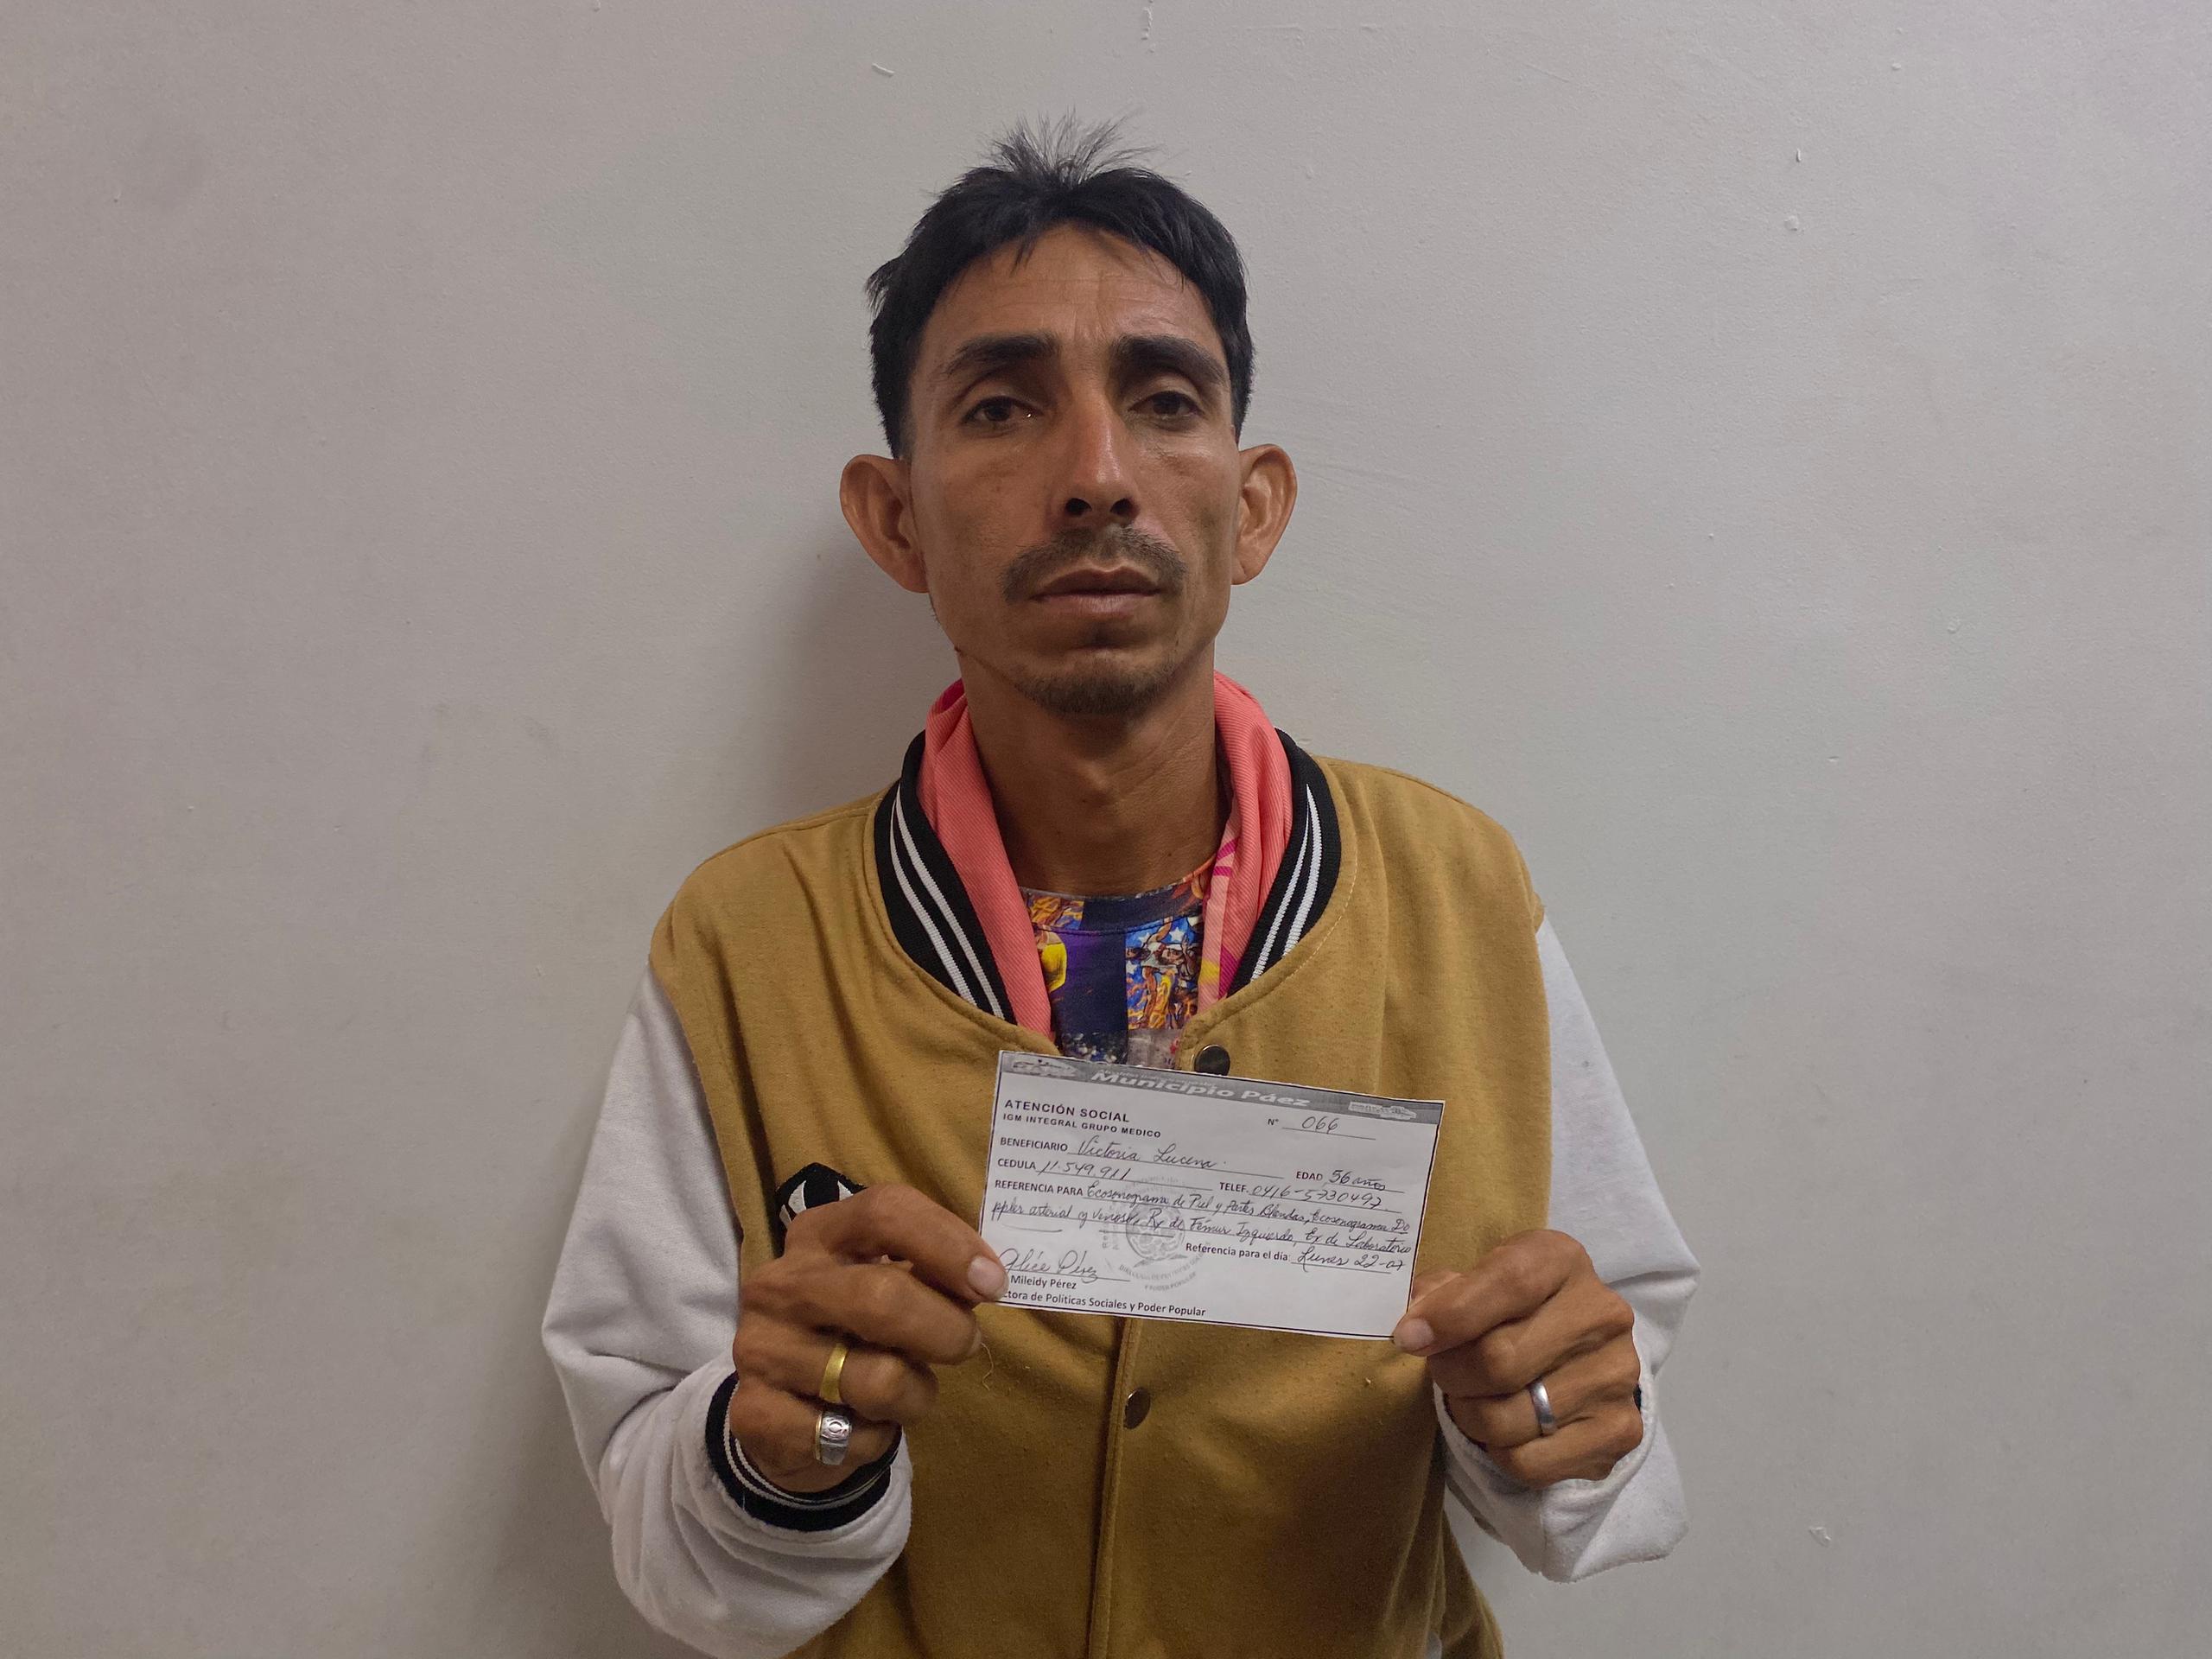 Municipio Páez
ATENCIÓN SOCIAL
IGM INTEGRAL GRUPO MEDICO
N° 066
BENEFICIARIO Victoria Lucena.
EDAD 56 años
CEDULA 11.549.911 TELEF. 0416-5730497
REFERENCIA PARA Ecosonograma de Piel y Partes Blandas, Ecosonograma Do
ppler arterial y venoso, Rx de Fémur Izquierdo, Ex de Laboratorio
Referencia para el día: Lunes 22-07
Mileidy Pérez
ctora de Políticas Sociales y Poder Popular